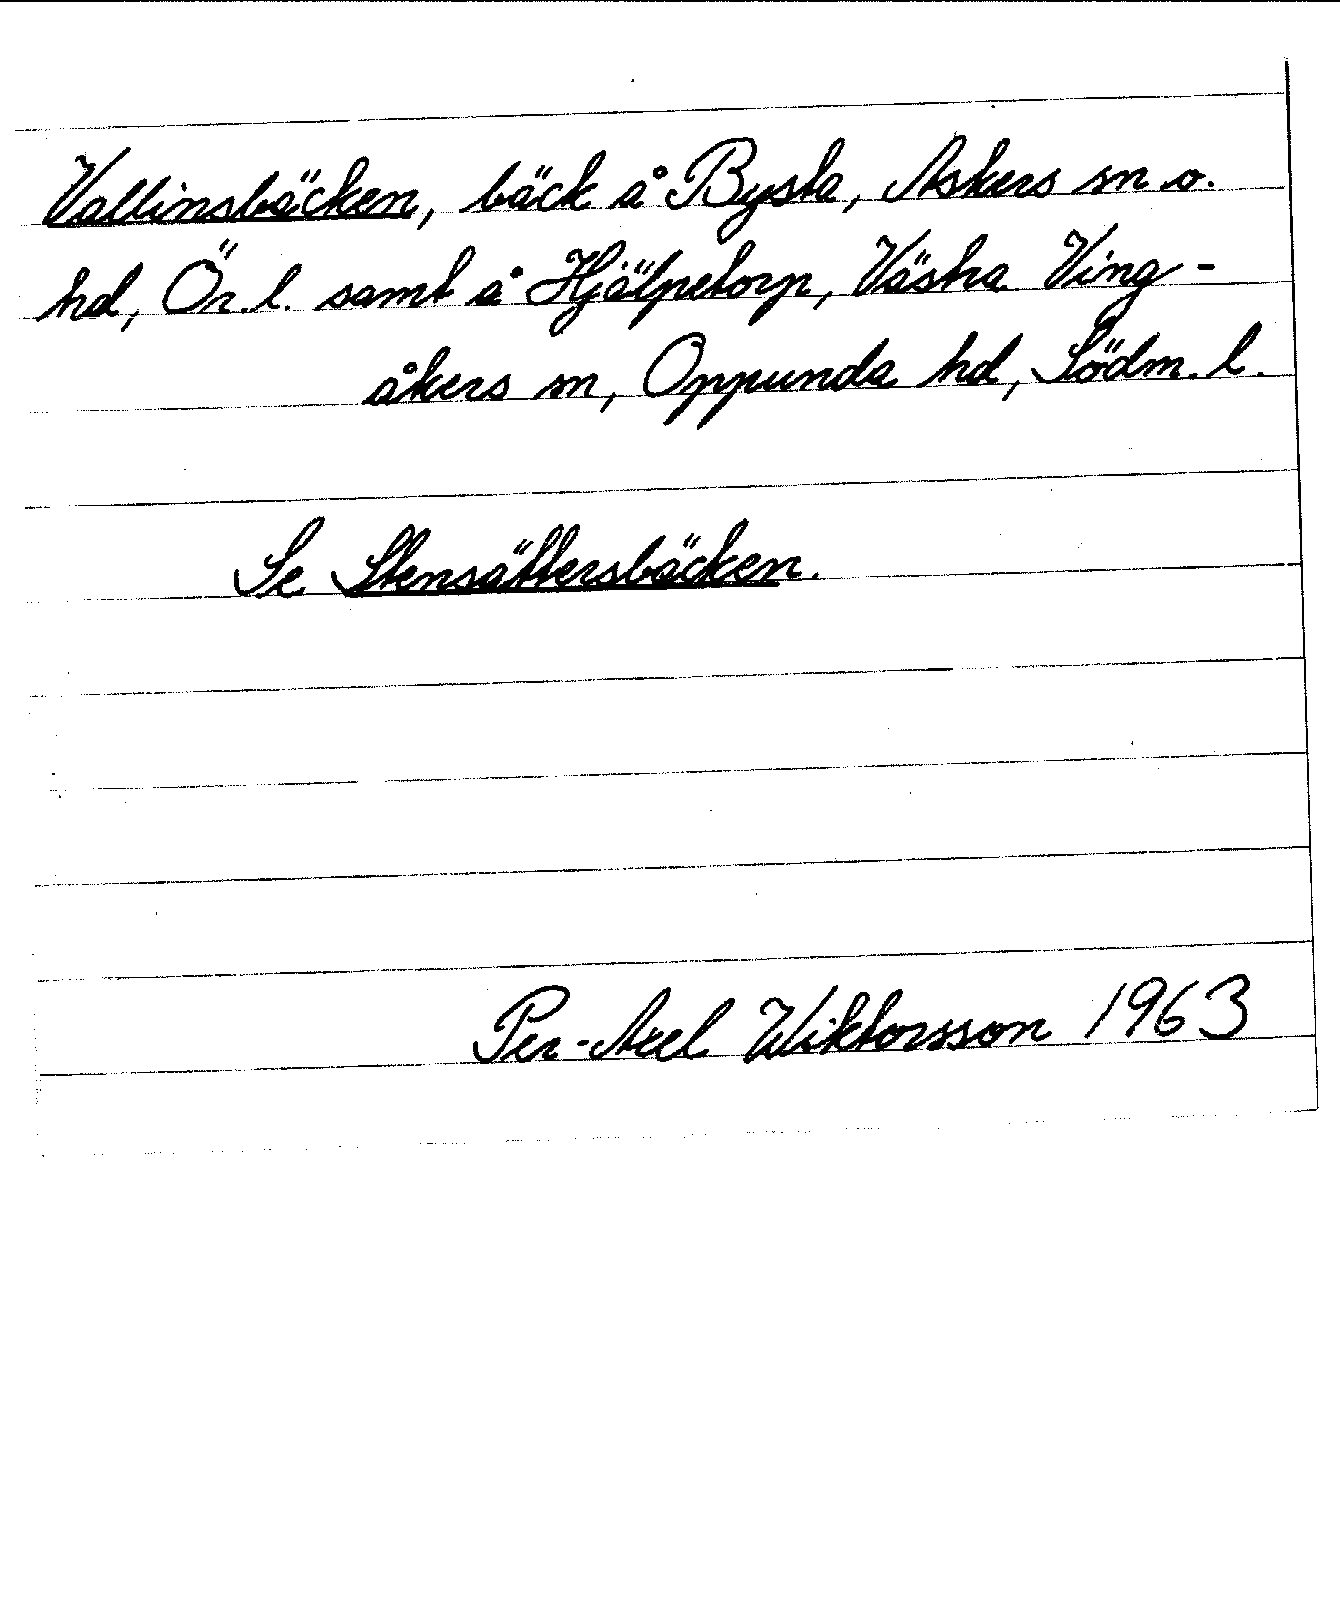 Vallinsbäcken, bäck å Bysta, Askers sn o.
hd, Ör. l. samt å Hjälpetorp, Västra Ving-
åkers sn, Oppunda hd, Södm. l.
Se Stensättersbäcken.
Per-Axel Wiktorsson 1963